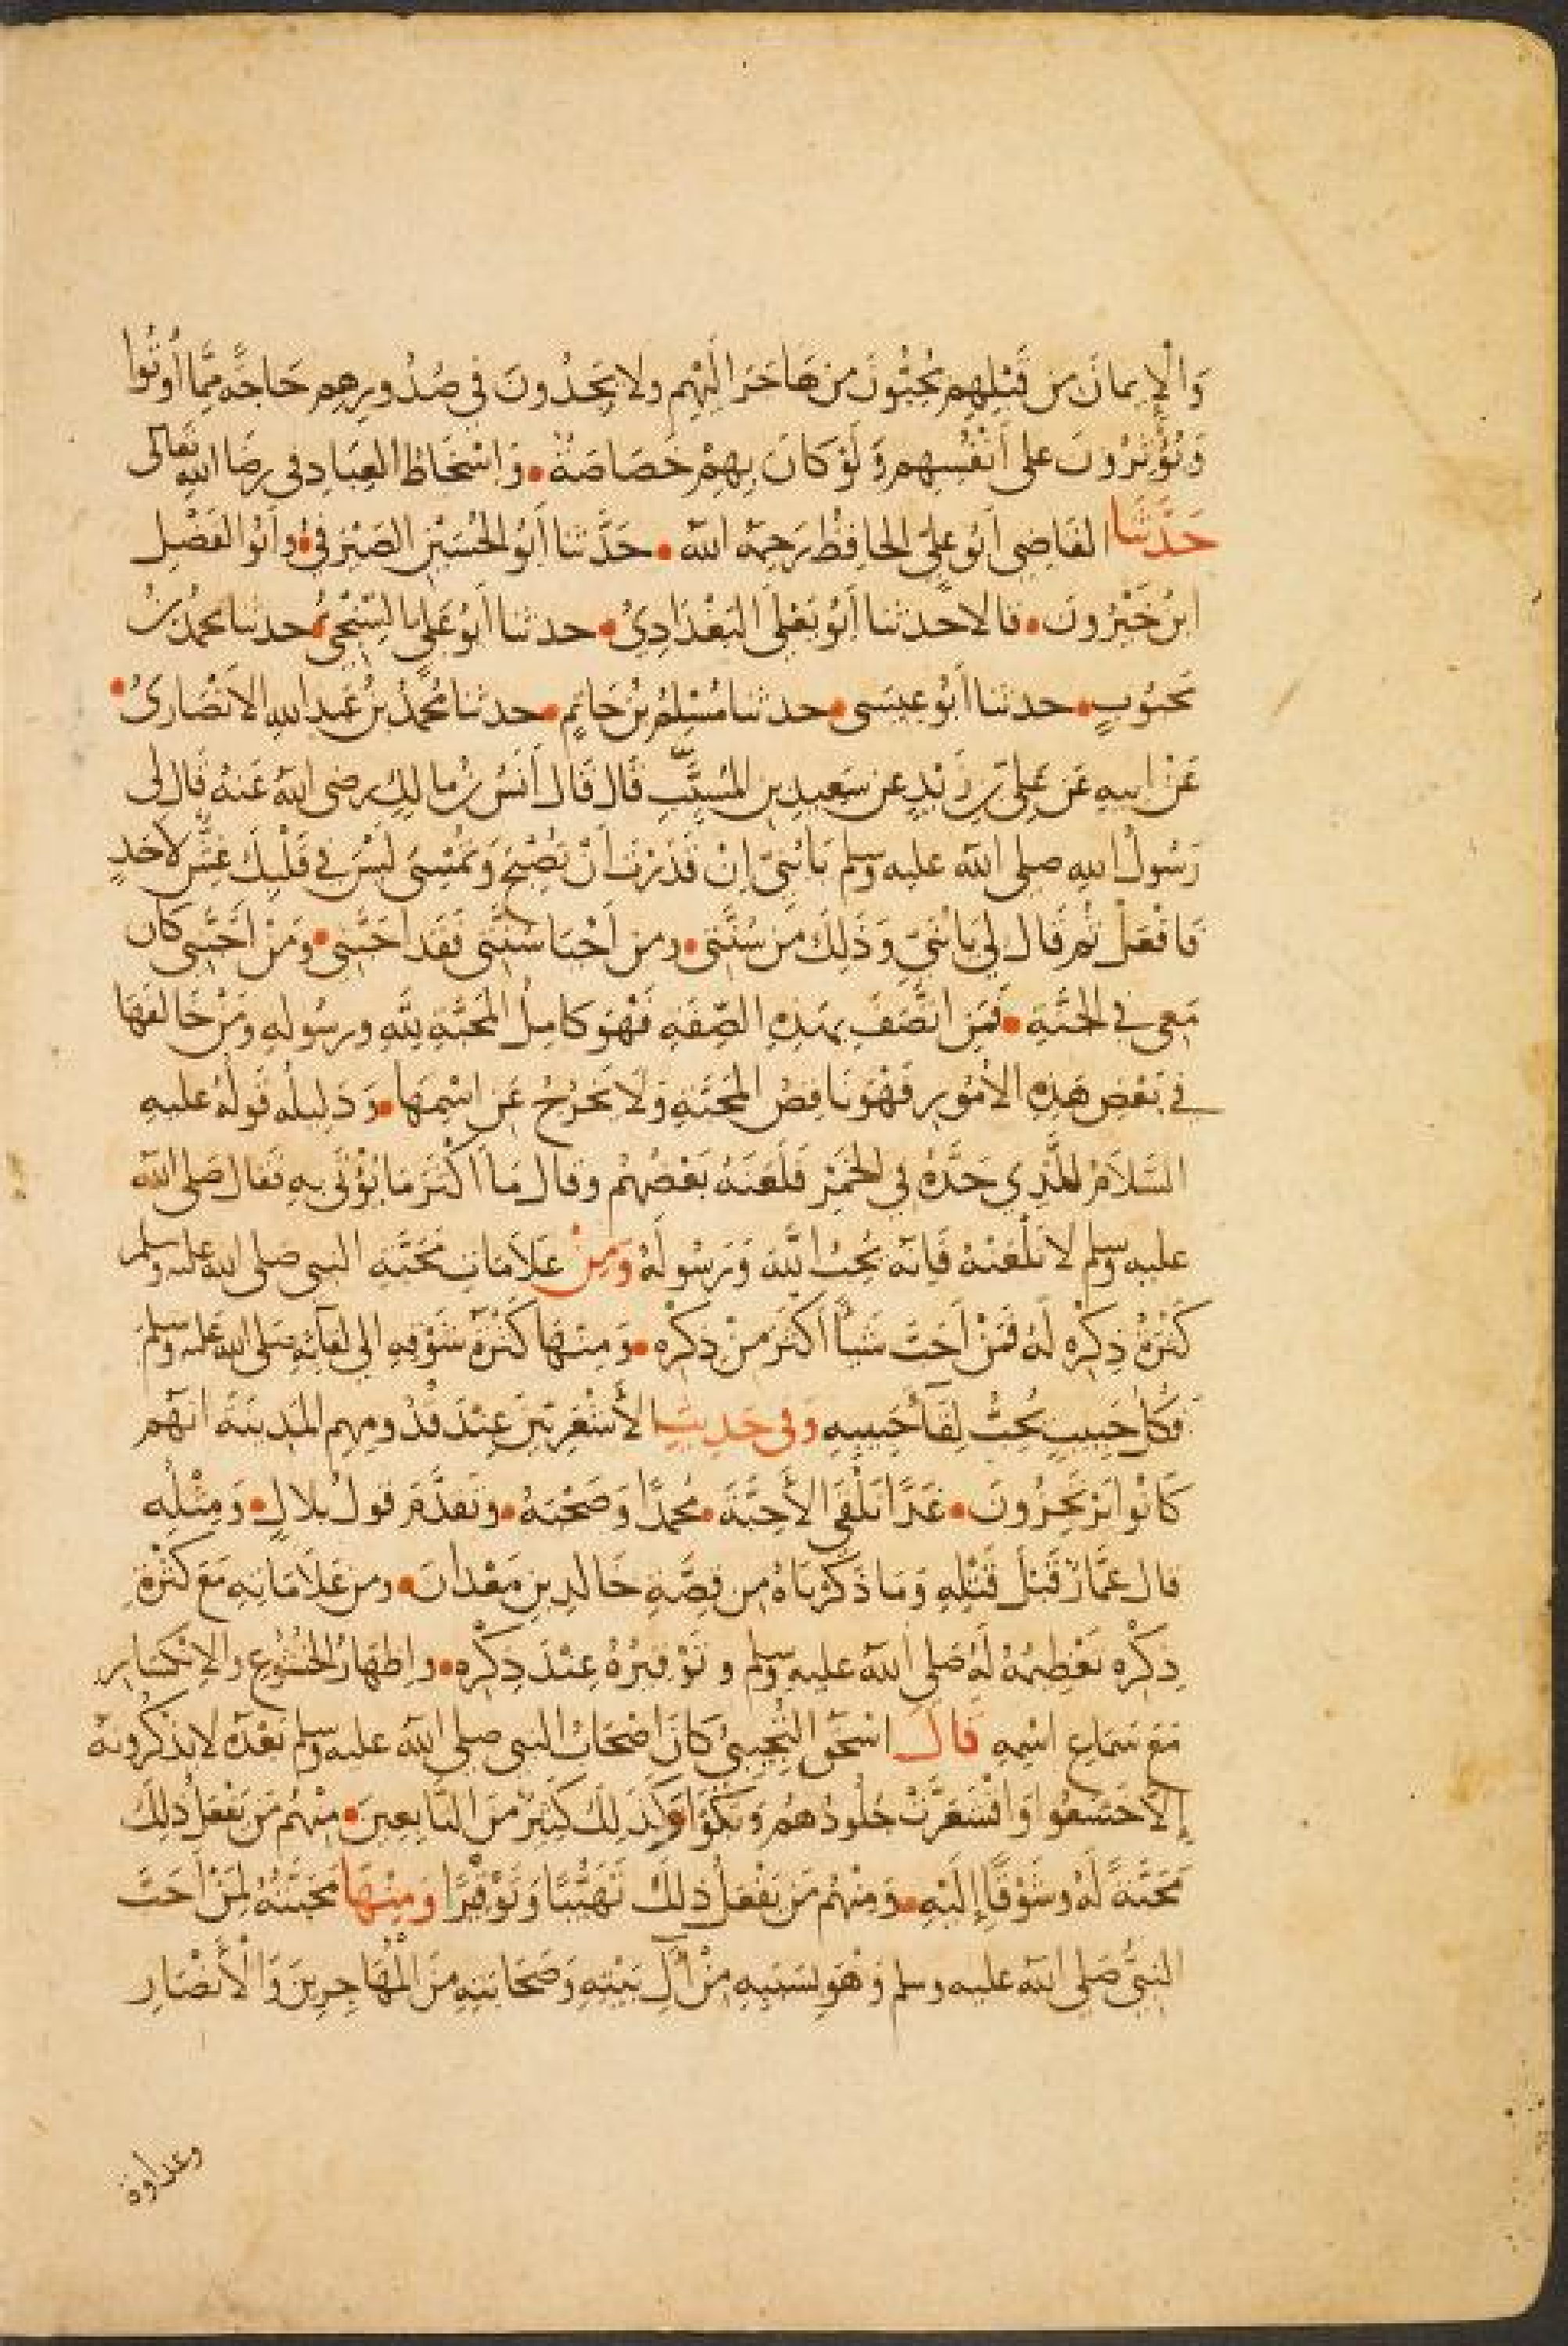 وَالْإِيمَانَ مِن قَبْلِهِم يُحِبُّونَ مَن هَاجَرَ إِلَيْهِم ولا يَجِدُونَ فِي صُدُورِهِم حَاجَةً مِمَّا أُوتُوا
وَيُؤْثِرُونَ على أَنْفُسِهِم وَلَوْ كَانَ بِهِمْ خَصَاصَةٌ • وَإِسْخَاطُ العِبَادِ فى رِضَا اللهِ تعالى
حَدَّثَنَا القَاضِي أَبُو عَلِيٍّ الحافِظُ رَحِمَهُ الله • حَدَّثنا أَبُو الحُسَيْنِ الصَّيْرَفِيُّ • وأَبُو الفَضْلِ
ابْنُ خَيْرُونَ • قالا حَدثنا أَبُو يَعْلَى البَغْدَادِيُّ • حدثنا أَبُو عَلِيٍّ السِّنْجِيُّ • حدثنا محمدُ بْنُ
مَحْبُوبٍ • حدثنا أَبُو عِيسَى • حدثنا مُسْلِمُ بْنُ حَاتِمٍ • حدثنا مُحَمَّدُ بْنُ عَبدِ اللهِ الأَنْصَارِىُّ •
عَنْ ابيهِ عَن عَلِيِّ بنِ زَيْدٍ عَن سَعِيدِ بنِ المُسَيَّبِ قَالَ قَالَ أَنَسُ بْنُ مالِكٍ رضى اللهُ عَنهُ قَال لى
رَسُولُ اللهِ صلى الله عليه وسلم يَا بُنَيَّ إِنْ قَدَرْتَ أَنْ تُصْبِحَ وَتُمْسِىَ لَيْسَ فِي قَلْبِكَ غِشٌّ لأَحَدٍ
فَافْعَلْ ثُم قَالَ لِي يَا بُنَيَّ وَذَلِكَ مِن سُنَّتِى • ومن أَحْيَا سُنَّتِي فَقَد أَحَبَّنِي • وَمَنْ أَحَبَّنِي كان
مَعِي فِي الجَنَّةِ • فَمَنِ اتَّصَفَ بِهَذِهِ الصِّفَةِ فَهْوَ كَامِلُ المَحَبَّةِ لِلَّهِ ورسُولِهِ وَمَنْ خَالَفَهَا
فِي بَعْضِ هَذِهِ الأُمُورِ فَهْوَ نَاقِصُ المَحَبَّةِ وَلَا يَخْرُجُ عَنِ اسْمِهَا • وَدَلِيلُه قَولُهُ عليهِ
السَّلَامُ لِلَّذِي حَدَّهُ فِي الخَمْرِ فَلَعَنَهُ بَعْضُهُم وقال مَا أَكْثَرَ مَا يُؤْتَى بِهِ فَقالَ صَلى الله
عليه وسلم لا تَلْعَنْهُ فَإِنَّه يُحِبُّ اللَّهَ وَرَسُولَهُ وَمِنْ عَلَامَاتِ مَحَبَّةِ النبي صلى الله عليه وسلم
كَثْرَةُ ذِكْرِهِ لَهُ فَمَنْ أَحَبَّ شَيْأً أَكْثَرَ مِنْ ذِكْرِه • وَمِنْهَا كَثْرَةُ شَوْقِهِ إلى لِقَائِهِ صَلى الله عليه وسلم
فَكُلُّ حَبِيبٍ يُحِبُّ لِقَاءَ حَبِيبِهِ وَفي حَدِيثِ الأَشْعَرِيِّينَ عِنْدَ قُدُومِهِم المَدِينَةَ أنَّهُم
كَانُوا يَرْتَجِزُونَ • غَدًا نَلْقَى الأَحِبَّةَ • مُحَمدًا وَصَحْبَهُ • وتَقَدَّمَ قولُ بِلالٍ • وَمِثْلُهُ
قال عَمَّارٌ قَبْلَ قَتْلِهِ وَمَا ذَكَرْنَاهُ مِن قِصَّةِ خَالِدِ بنِ مَعْدانَ • ومن عَلَامَاتِهِ مَعَ كَثْرَةِ
ذِكْرِهِ تَعْظِيمُهُ لَهُ صَلى الله عليهِ وسلم وتَوْقِيرُهُ عِنْدَ ذِكْرِه • وإِظهَارُ الخُشُوعِ والانْكِسَارِ
مَعَ سَمَاعِ اسْمِهِ قَالَ اسْحَقُ التُّجِيبِيُّ كَانَ أَصْحَابُ النبي صلى الله عليه وسلم بَعْدَه لا يَذْكُرُونَهُ
إِلَّا خَشَعُوا وَاقْشَعَرَّتْ جُلُودُهُم وَبَكَوْا وَكَذَلِكَ كَثِيرٌ مِنَ التَّابِعِينَ • مِنْهُم مَن يَفْعَلُ ذلِكَ
مَحَبَّةً لَهُ وشَوْقًا إِلَيْهِ • وَمِنْهُم مَن يَفْعَلُ ذلِكَ تَهَيُّبًا وَتَوْقِيرًا وَمِنْهَا مَحَبَّتُهُ لِمَنْ أَحَبَّ
النبيُّ صَلى الله عليه وسلم وَهْوَ بِسَبَبِهِ مِنْ آلِ بَيْتِهِ وَصَحَابَتِهِ مِنَ الْمُهَاجِرِينَ وَالْأَنْصَارِ
وعداوة